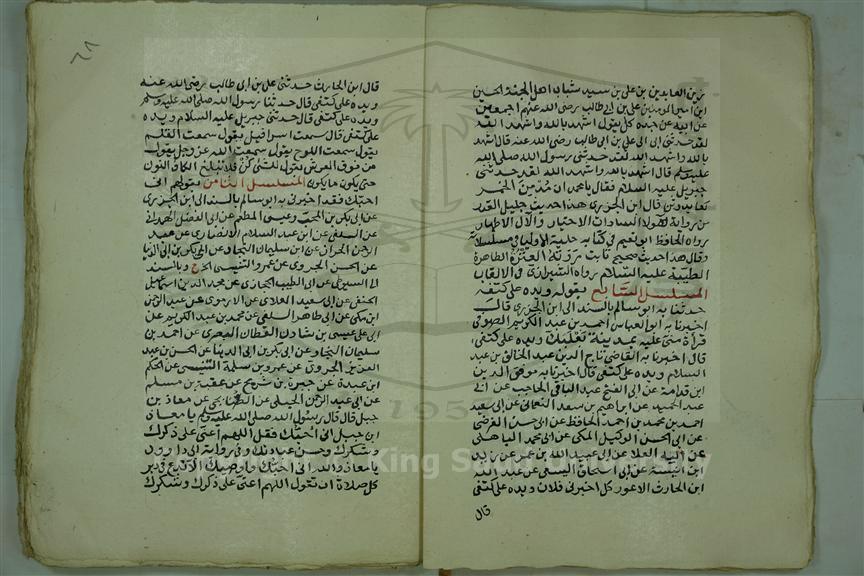 زين العابدين بن علي بن سيد شباب اهل الجنة الحسين
ابن امير المومنين علي بن ابي طالب رضي الله عنهم اجمعين
عن ابيه عن جده كل يقول اشهد بالله واشهد الله
لقد حدثني ابي علي بن ابي طالب رضي الله عنه قال اشهد
بالله واشهد الله لقد حدثني رسول الله صلي الله
عليه وسلم قال اشهد بالله واشهد الله لقد حدثني
جبريل عليه السلام فقال يا محمد ان مدمن الخمر
كعابد وثن قال ابن الجزري هذا حديث جليل القدر
من رواية هولا السادات الاخيار والآل الاطهار
رواه الحافظ ابو نعيم في كتابه حلية الاوليا في مسلسلاته
وقال هذا حديث صحيح ثابت روته العترة الطاهرة
الطيبة عليهم السلام رواه الشيرازي في الالقاب
المسلسل السابع بقوله ويده علي كتفه
حدثنا به ابو سالم بالسند الي ابن الجزري قال
اخبرنا به ابو العباس احمد بن عبد الكريم الصوفي
قراة مني عليه بمدينة بعلبك ويده علي كتفي
قال اخبرنا به القاضي تاج الدين عبد الخالق بن عبد
السلام ويده علي كتفي قال اخبرنا به موفق الدين
ابن قدامة عن ابي الفتح عبد الباقي الحاجب عن ابي
عبد الحميد عن ابراهيم بن سعد النعماني عن ابي سعيد
احمد بن محمد بن احمد الحافظ عن ابي حسن الفرضي
عن ابي الحسن الوكيل المكي عن ابي محمد الباهلي
عن ابيه العلا عن ابي عبيد الله بن عمر عن زيد
ابن انيسة عن ابي اسحاق السبيعي عن عبد الله
ابن الحارث الاعور كل اخبرني فلان ويده علي كتفي
قال
٦٨
قال ابن الحارث حدثني علي بن ابي طالب رضي الله عنه
ويده علي كتفي قال حدثنا رسول الله صلي الله عليه وسلم
ويده علي كتفي قال حدثني جبريل عليه السلام ويده
علي كتفي قال سمعت اسرافيل يقول سمعت القلم
يقول سمعت اللوح يقول سمعت الله عز وجل يقول
من فوق العرش يقول للشي كن فلا تبلغ الكاف النون
حتي يكون ما يكون المسلسل الثامن بقولهم اني
احبك فقد اخبرني به ابو سالم بالسند الي ابن الجزري
عن ابي بكر بن المحب وعيسي المطعم عن ابي الفضل الهمداني
عن السلفي عن ابن عبد السلام الانصاري عن عبد
الرحمن الحراني عن ابن سليمان النجاد عن ابي بكر بن ابي الدنيا
عن الحسن الجروي عن عمرو التنيسي الخ ح وبالسند
الي السيوطي عن ابي الطيب الحجازي عن مجد الدين اسماعيل
الحنفي عن ابي سعيد العلاي عن الارموي عن عبد الرحمن
ابن مكي عن ابي طاهر السلفي عن محمد بن عبد الكريم عن
ابي علي عيسي بن شاذان القطان البصري عن احمد بن
سليمان النجاد عن ابي بكر بن ابي الدنيا عن الحسن بن عبد
العزيز الجروي عن عمرو بن سلمة التنيسي عن الحكم
ابن عبدة عن حيوة بن شريح عن عقبة بن مسلم
عن ابي عبد الرحمن الحبلي عن الصنابحي عن معاذ بن
جبل قال قال رسول الله صلي الله عليه وسلم يا معاذ
ابن جبل اني احبك فقل اللهم اعني علي ذكرك
وشكرك وحسن عبادتك وفي رواية ابي داود
يا معاذ والله اني احبك واوصيك لا تدع في دبر
كل صلاة ان تقول اللهم اعني علي ذكرك وشكرك
King Saud University
1957